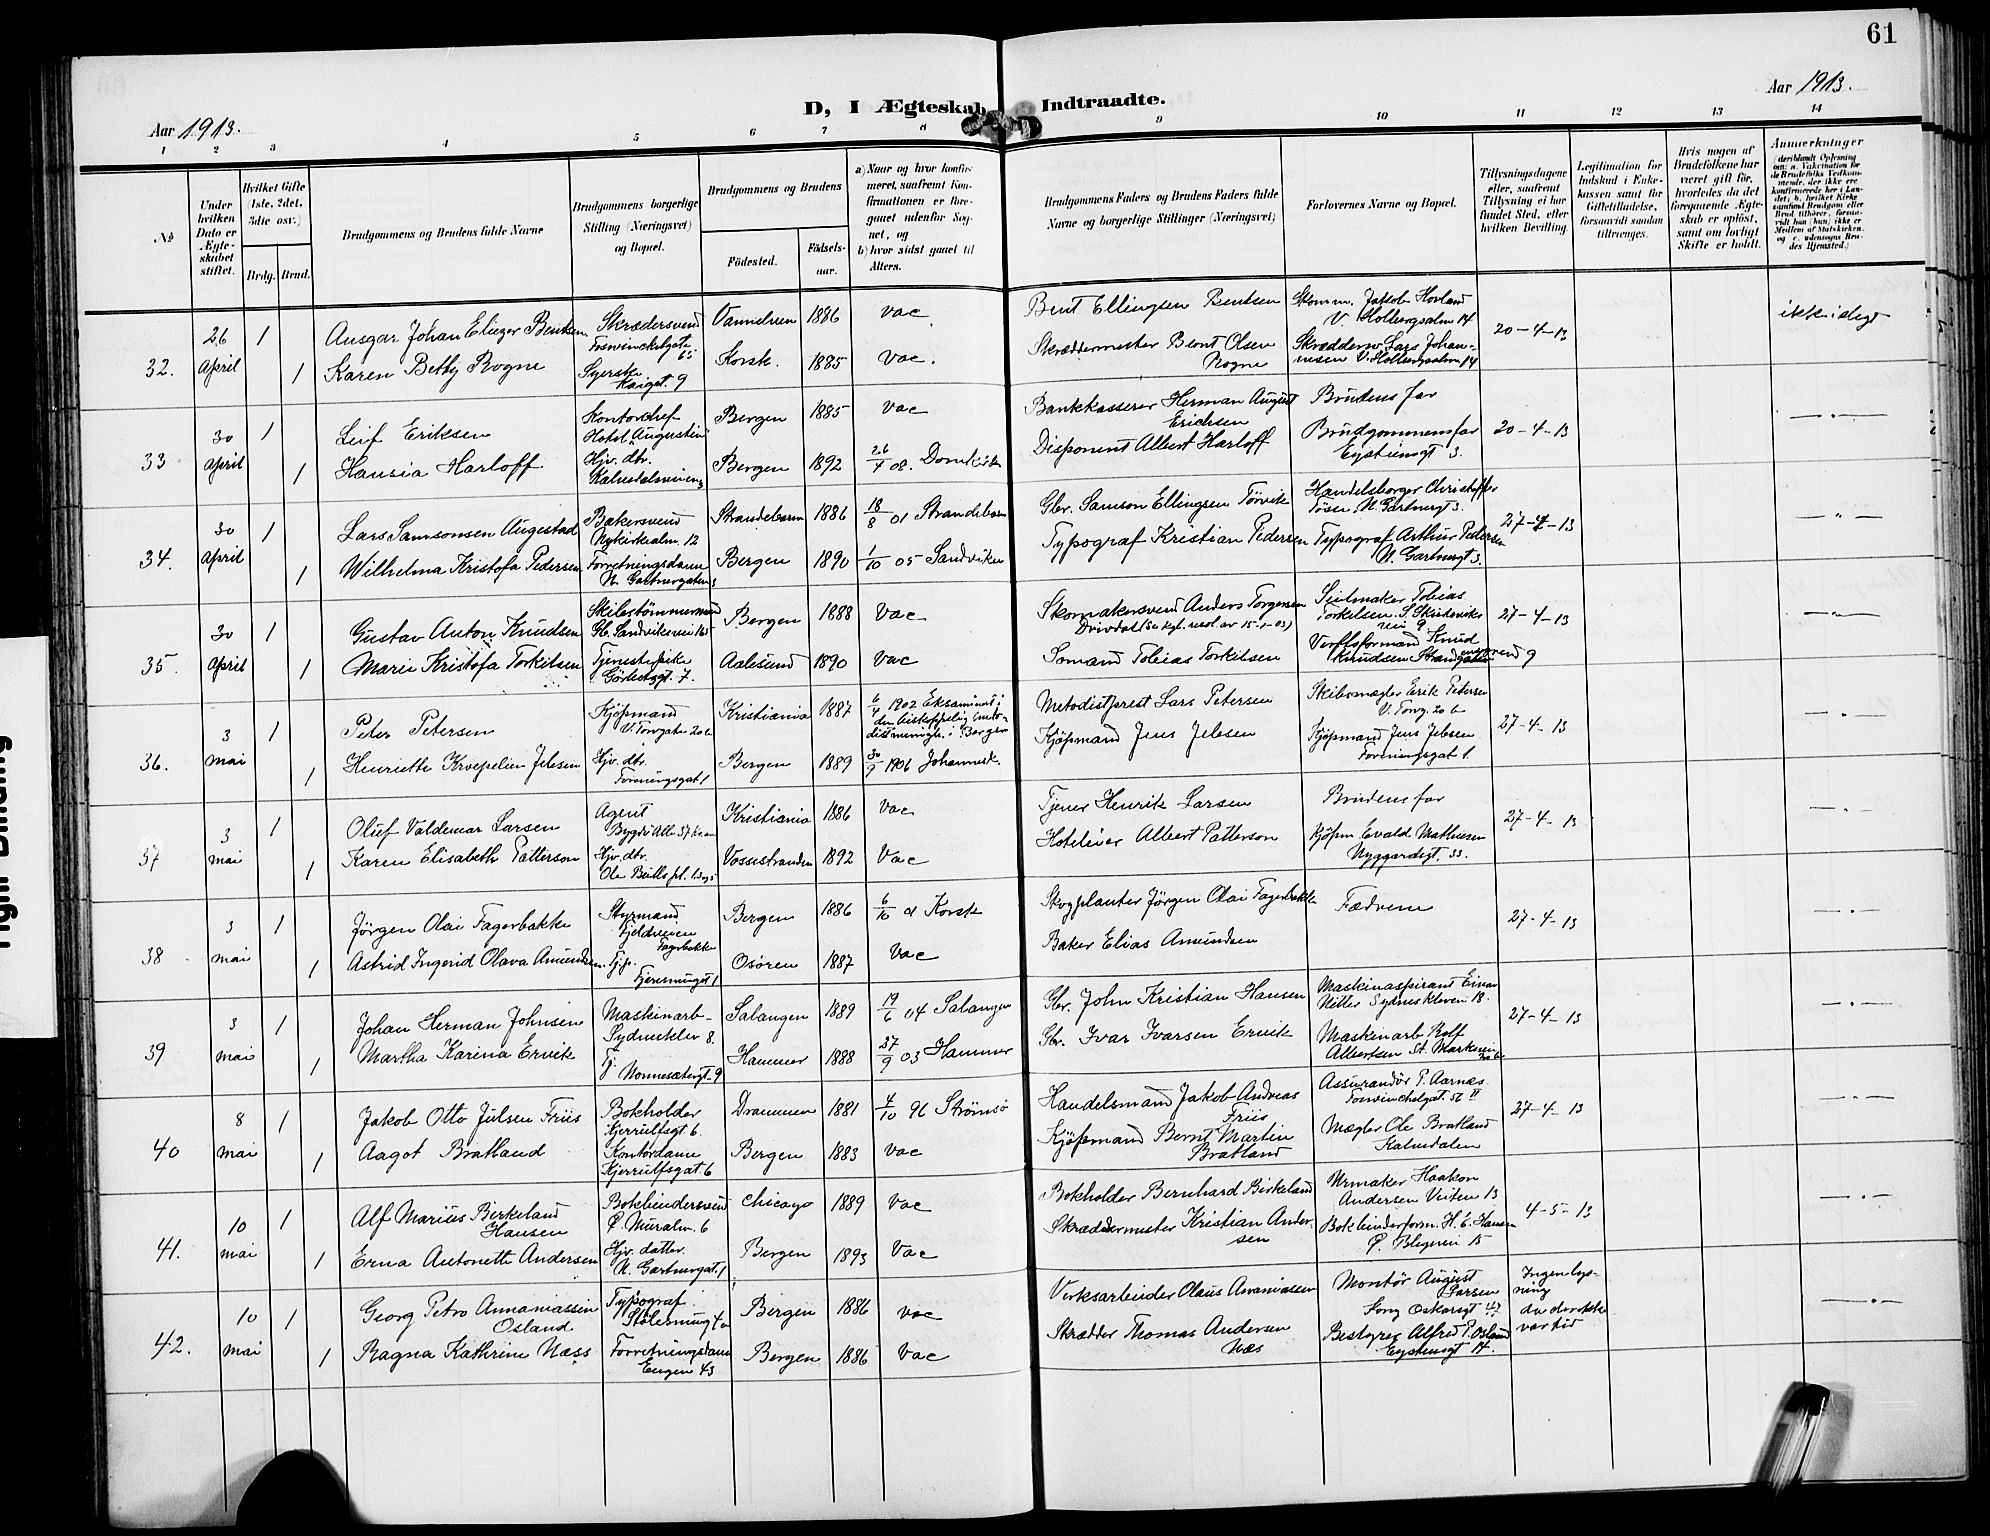 61
Aar 1913.
D, I Ægteskab Indtraadte.
Aar 1913.
1 2 3 4 5 6 7 8 9 10 11 12 13 14
No
Under hvilken Dato er Ægteskabet stiftet.
Hvilket Gifte (1ste, 2det, 3die osv.)
Brdg. Brud.
Brudgommens og Brudens fulde Navne
Brudgommens borgerlige Stilling (Næringsvei) og Bopæl.
Brudgommens og Brudens
Födested. Födsels-aar.
a) Naar og hvor konfirmeret, saafremt Konfirmationen er foregaaet udenfor Sognet, og
b) hvor sidst gaaet til Alters.
Brudgommens Faders og Brudens Faders fulde Navne og borgerlige Stillinger (Næringsvei)
Forlovernes Navne og Bopæl.
Tillysningsdagene eller, saafremt Tillysning ei har fundet Sted, efter hvilken Bevilling.
Legitimation for Indskud i Enkekassen samt for Giftetilladelse, forsaavidt saadan tiltrænges.
Hvis nogen af Brudefolkene har været gift för, hvorledes da det foregaaende Ægteskab er oplöst, samt om lovligt Skifte er holdt.
Anmerkninger
(deriblandt Oplysning om: a. Vakcination for de Brudefolks Vedkommende, der ikke ere konfirmerede her i Landet; b. hvilket Kirkesamfund Brudgom eller Brud tilhörer, forsaavidt han (hun) ikke er Medlem af Statskirken, og c. udensogns Brudes Hjemsted.)
32. 26 April 1 Ansgar Johan Eliezer Bentsen Skrædersvend Fosswinckelsgate 65 1886 vac Bent Ellingsen Bentsen Skomm. Jakob Hovland V. Holbergsalm 14 20-4-13 ikke i slegt
1 Karen Betty Rogne Syerske Kaigt. 9 Korsk. 1885 vac. Skræddermester Bernt Olsen Rogne Skræddersv. Lars Johannesen V. Holbergsalm. 14
33 30 April 1 Leif Eriksen Kontorchef Hotel Augustin Bergen 1885 vac Bankkasserer Herman August Erichsen Brudens far 20-4-13 — " —
1 Hansia Harloff Hjv. dtr. Kalvedalsveien Bergen 1892 26/4 08. Domkirk Disponent Albert Harloff Brudgommens far Eystiensgt 3.
34. 30 April 1 Lars Samsonsen Augestad Bakersvend Nykirkealm. 12 Strandebarm 1886 18/8 01 Strandebarm Gbr. Samson Ellingsen Törvik Handelsborger Christoffer Tösse, N. Gartnergt 3. 27-4-13 — " —
1 Wilhelma Kristofa Pedersen Forretningsdame N. Gartnergaten 3 Bergen 1890 1/10 05 Sandviken Typograf Kristian Pedersen Typograf Arthur Pedersen N. Gartnergt 3.
35. 30 April 1 Gustav Anton Knudsen Skibstømmermand Gl. Sandviksvei 165 Bergen 1888 Vac Skomakersvend Anders Torgersen Drivdal (Se kgl. resol. av 15-1-03) Seilmaker Tobias Torkilsen, S. Skuteviksvei 9. 27-4-13 — " —
1 Marie Kristofa Torkilsen Tjenestepike Görbitzgt. 7. Aalesund 1890 Vac Sømand Tobias Torkilsen Verftsformand Knud Knudsen Strandgaten 9
36. 3 mai 1 Peter Petersen Kjöpmand V. Torvgate 20 b Kristiania 1887 6/4 1902 Eksaminert i den biskoppelig metodistmenigh. i Bergen Metodistprest Lars Petersen Skibsmægler Erik Petersen V. Torvg. 20 b 27-4-13 — " —
1 Henriette Krøpelien Jebsen Hjv. dtr. Foreningsgat 1 Bergen 1889 30/9 1906 Johannesk. Kjöpmand Jens Jebsen Kjöpmand Jens Jebsen Foreningsgat 1.
37 3 mai 1 Oluf Valdemar Larsen Agent Bygdö Alle 37 Kristiania 1886 Vac Tjener Henrik Larsen Brudens far 27-4-13 — " —
1 Karen Elisabeth Patterson Hjv. dtr. Ole Bulls pl. Vossestranden 1892 Vac Hoteleier Albert Patterson Kjöpm Evald Mathiesen Nygaardsgt. 33.
38 3 mai 1 Jörgen Olai Fagerbakke Styrmand Fjeldveien Fagerbakke Bergen 1886 6/10 01 Korsk Skogplanter Jörgen Olai Fagerbakke Fædrene 27-4-13 — " —
1 Astrid Ingerid Olava Amundsen Tjp. Osören 1887 Vac Baker Elias Amundsen
39 3 mai 1 Johan Herman Johnsen Maskinarb- Sydneskler 8. Salangen 1889 19/6 04 Salangen Gbr. John Kristian Hansen Maskinaspirant Einar Nitter Sydneskleven 18. 27-4-13 — " —
1 Martha Karina Ervik Tj. Nonnesætergt. 9 Hammer 1888 27/9 03 Hammer Gbr. Ivar Ivarsen Ervik Maskinarb. Rolf Albertsen St. Markevei
40 8 mai 1 Jakob Otto Julsen Friis Bokholder Kjerrulfsgt 6. Drammen 1881 4/10 96 Strömsö Handelsmand Jakob Andreas Friis Assurandör P. Aarnæs Fosswinckelsgat. 52 II 27-4-13 — " —
1 Aagot Bratland Kontordame Kjerrulfsgat 6 Bergen 1883 vac Kjöpmand Bernt Martin Bratland Mægler Ole Bratland Kalvedalen
41. 10 mai 1 Alf Marius Birkeland Hansen Bokbindersvend Ö. Muralm. 6 Chicago 1889 Vac Bokholder Bernhard Birkeland Urmaker Haakon Andersen Veiten 13 4-5-13 — " —
1 Erna Antonette Andersen Hjv. datter. N. Gartnergat. 1 Bergen 1893 Vac Skræddermester Kristian Andersen Bokbinderform. H. E. Hansen Ö. Blegevei 15
42. 10 mai 1 Georg Petro Annaniassen Osland Typograf Stölesmug 4a Bergen 1886 vac Verksarbeider Olaus Ananiassen Montör August Larsen Long Oskarsgt 47 Ingen lysning da der ikke var tid — " —
1 Ragna Kathrine Næss Forretningsdame Engen 43 Bergen 1886 Vac Skrædder Thomas Andersen Næs Bestyrer Alfred P. Osland Eystensgt 14.